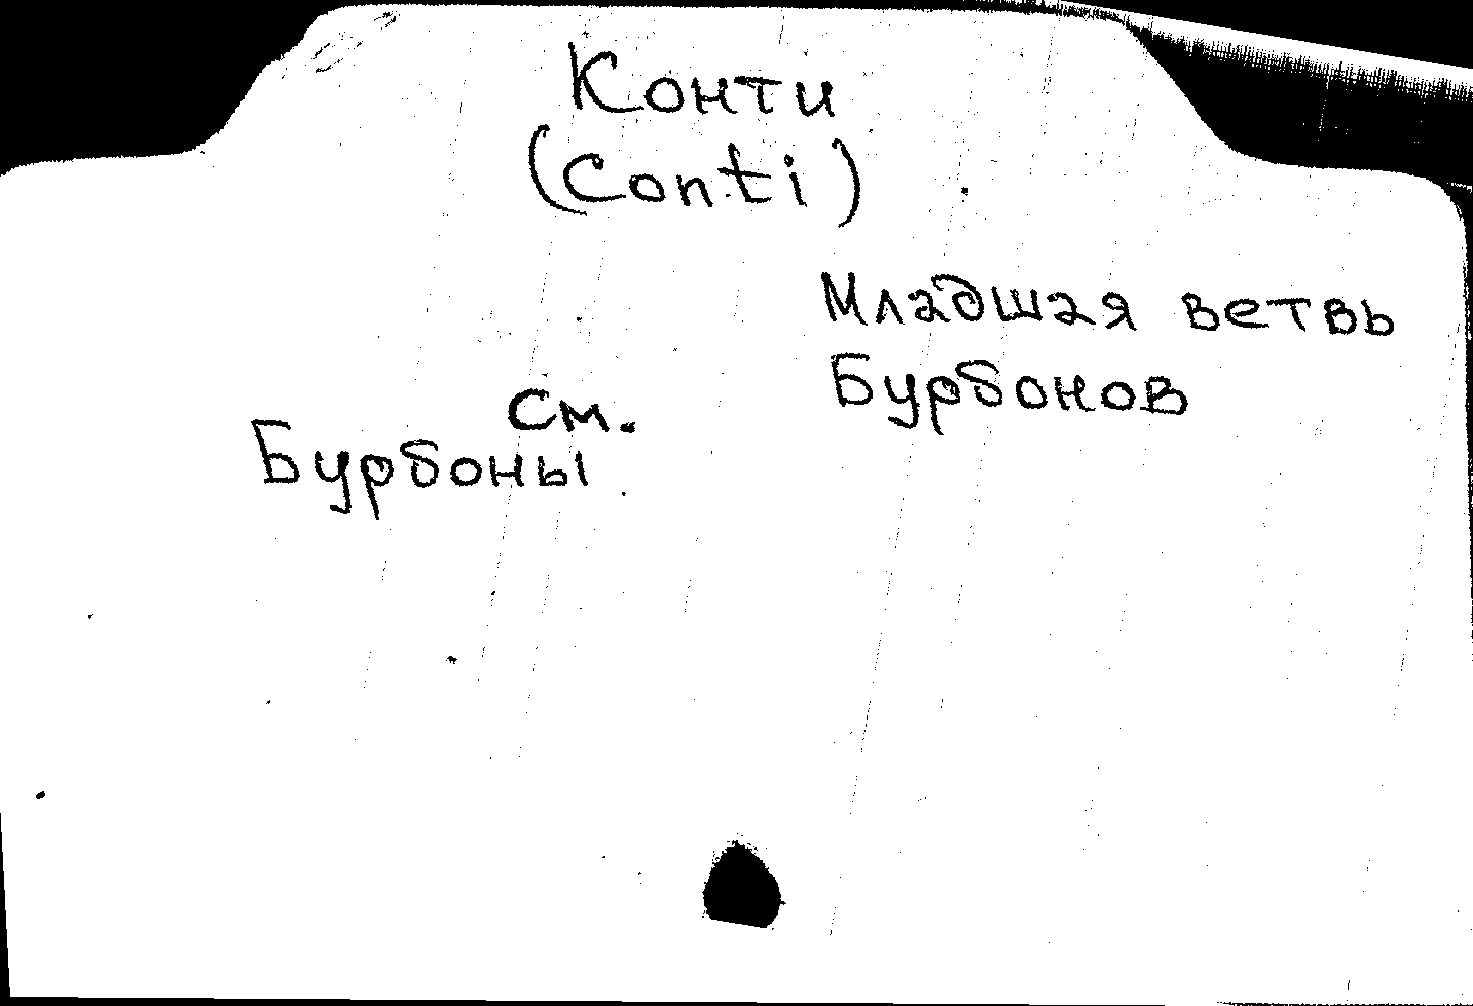 Конти
(Conti)
Младшая ветвь
Бурбонов
см.
Бурбоны